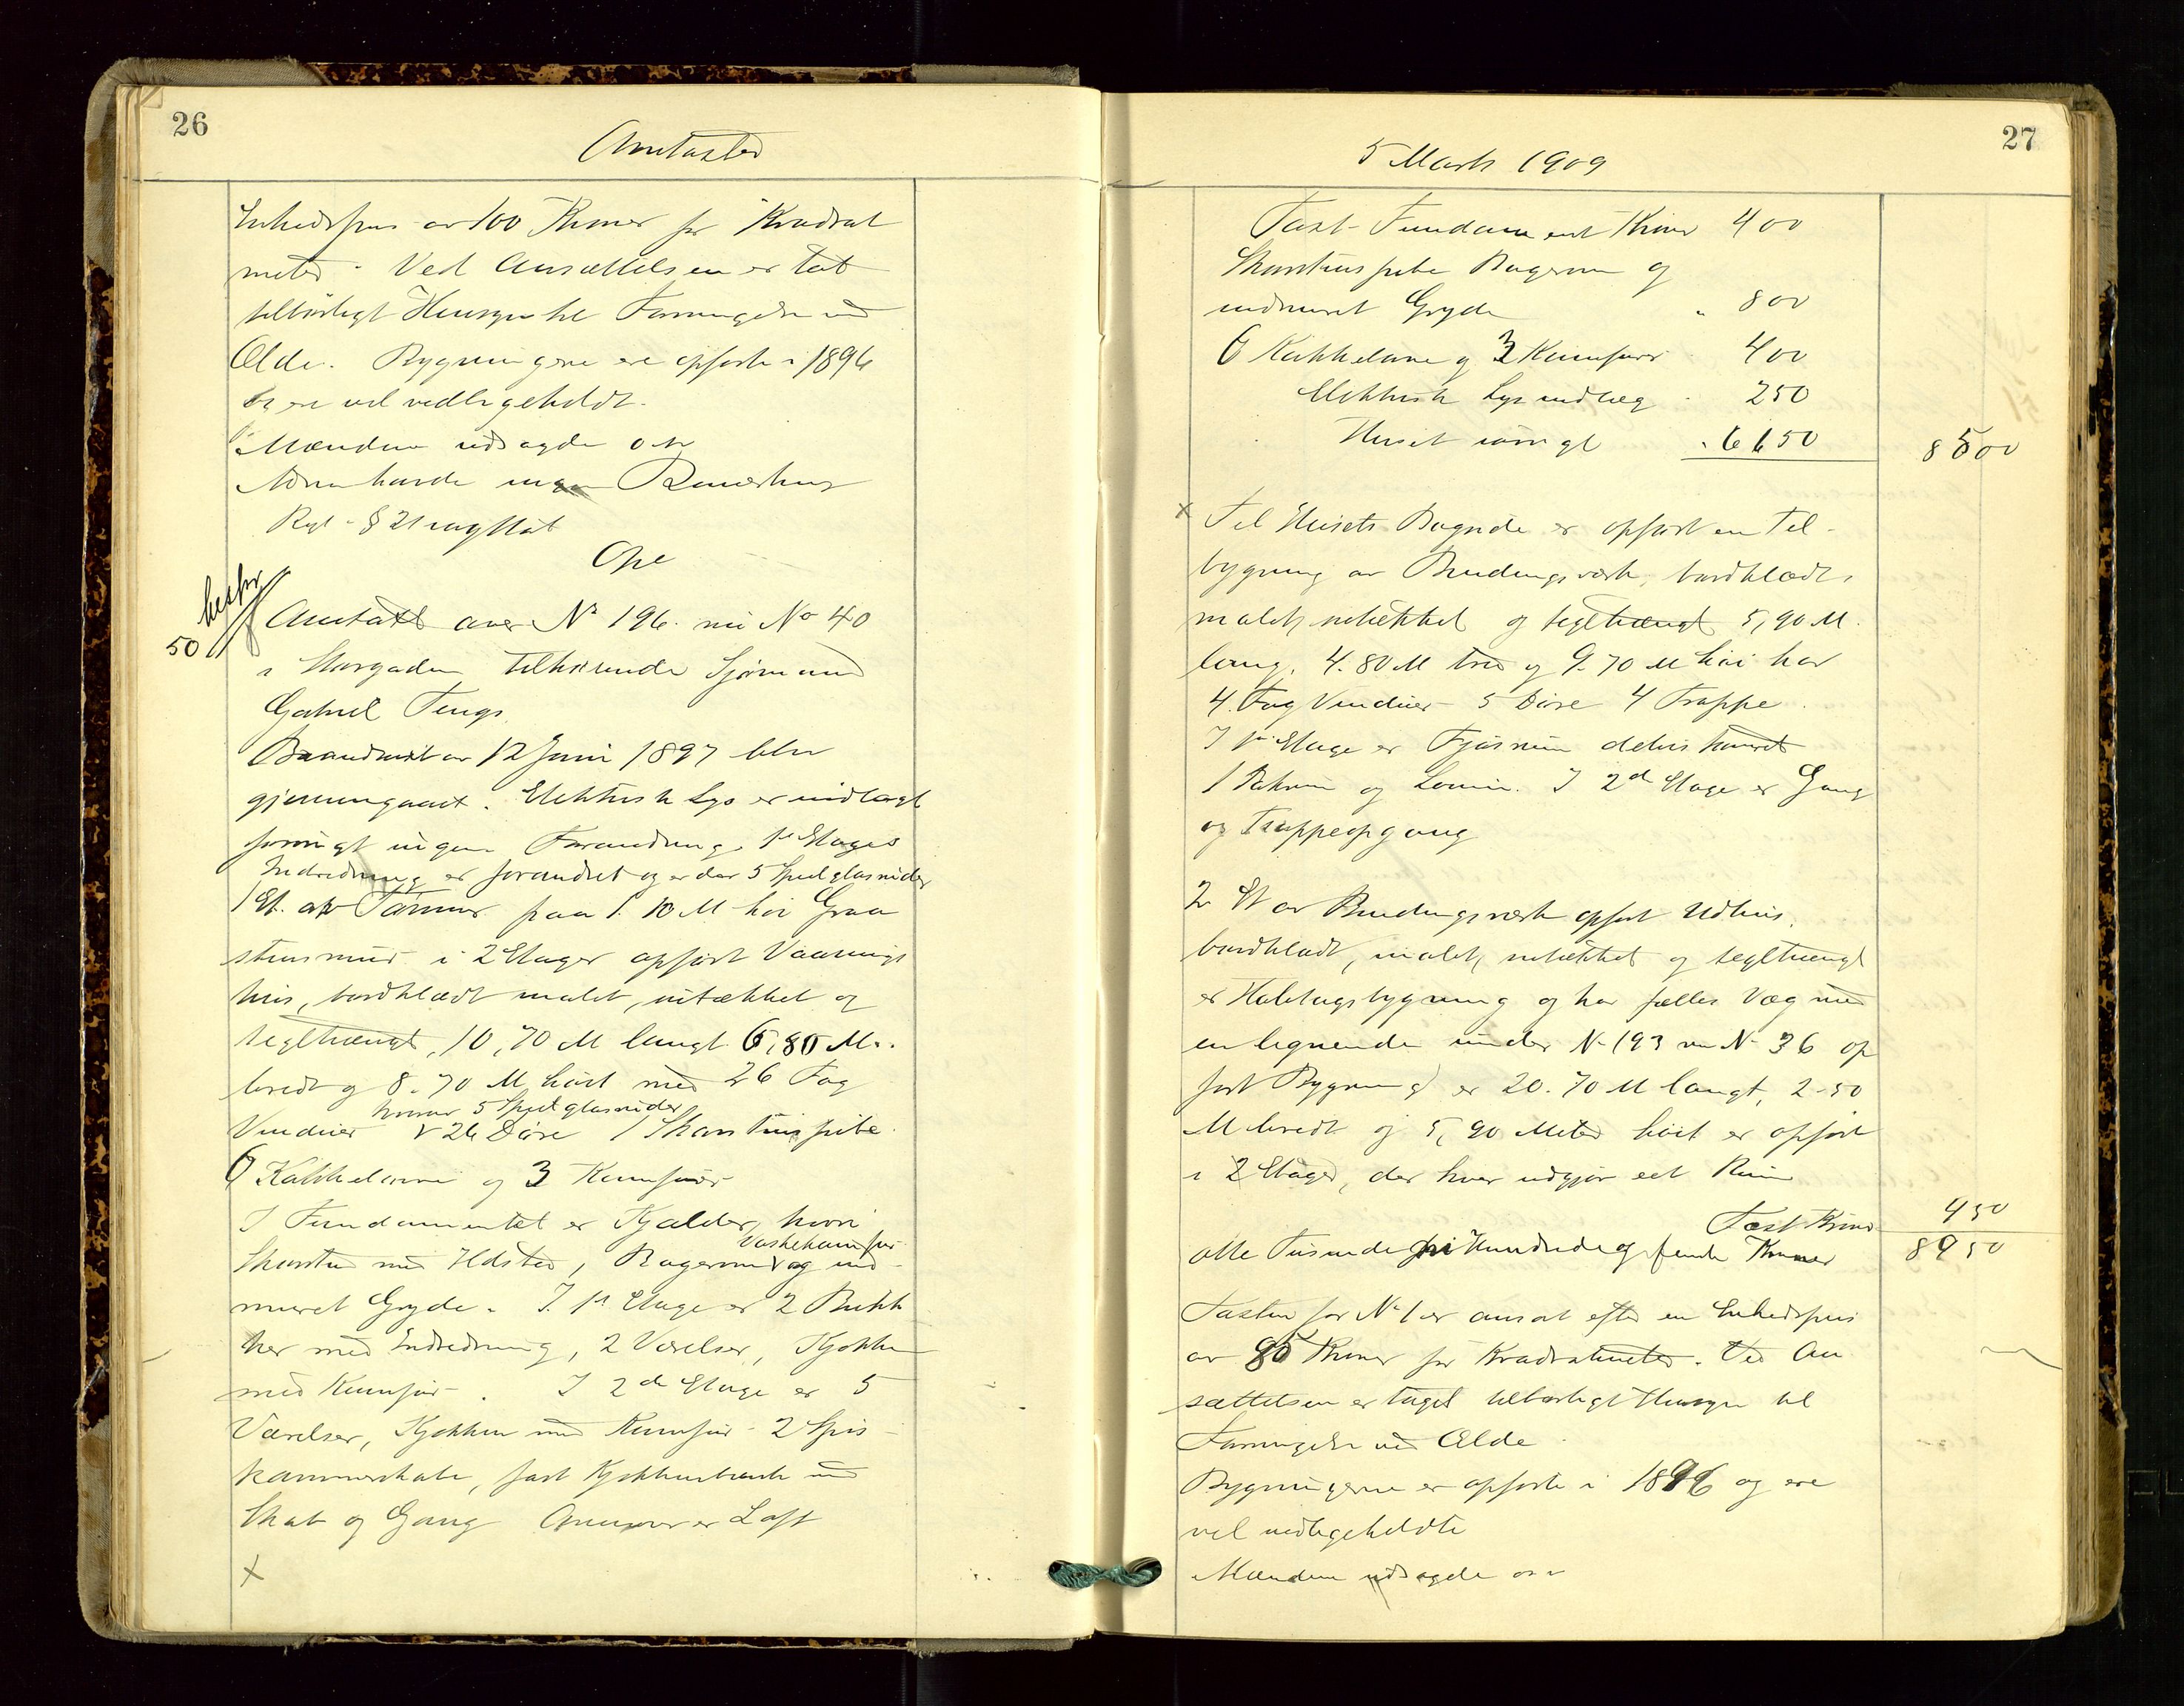 26
Omtaxter
Enhedspris av 100 Kroner pr Kvadrat
meter. Ved Ansættelsen er tat
tilbørligt Hensyn til Forringelse ved
Ælde. Bygningerne ere opførte i 1896
og ere vel vedligeholdt.
Mændene udsagde osv
Adm havde ingen
Regl. § 21 iagttat
Ope
50
Omtaxt over No 196. nu No 40
i Storgaden tilhørende Sjømand
Gabriel Tengs.
Brandtaxt av 12 Juni 1897 blev
gjennemgaaet. Elektrisk Lys er indlagt
forøvrigt ingen Forandring. 1ste Etages
Indredning er forandret og er der 5 Speilglasruder
1 Et. av Tømmer paa 1.10 M høi Graa
stensmur i 2 Etager opført Vaanings
hus, bordklædt malet, nitækket og
tegltængt, 10,70 M langt 6,80 M.
bredt og 8.70 M høit med 26 Fag
hvorav 5 Speilglasruder
Vinduer 26 Døre 1 Skorstenspibe
6 Kakkelovne og 3 Komfurer
I Fundamentet er Kjælder, hvori
Vaskekomfur
Skorsten med Ildsted, Bagerovn og ind
muret Gryde. I 1ste Etage er 2 Butik
ker med Indredning, 2 Værelser, Kjøkken
med Komfur. I 2den Etage er 5
Værelser, Kjøkken med Komfur 2 Spis
kammerskabe, fast Kjøkkenbænk med
Skab og Gang Ovenover er Loft
x
27
5 Marts 1909
Taxt Fundament Kroner 400
Skorstenspibe Bagerovn og
indmuret Gryde " 800
6 Kakkelovne og 3 Komfurer 400
Elektrisk Lys indlæg 250
Huset iøvrigt " 6650
8500
x Til Husets Bagside er opført en Til-
bygning av Bindingsværk, bordklædt,
malet, nitækket og tegltængt 5,90 M.
lang, 4.80 M bred og 9.70 M høi har
4 Fag Vinduer 5 Døre 4 Trappe.
I 1ste Etage er Fjøsrum delvis
1 Baderum og Lorum. I 2den Etage er Gang
og Trappeopgang
2 Et av Bindingsværk opført Udhus,
bordklædt, malet, nitækket og tegltængt
er Halvtagsbygning og har fælles Væg med
en lignende under No 193 nu No 36 op
ført Bygning, er 20.70 M langt, 2.50
M bredt og 5,90 Meter høit er opført
i 2 Etager, der hver udgjør eet Rum
Taxt Kroner 450
otte Tusinde ni Hundrede og femti Kroner 8950
Taxten for No 1 er ansat efter en Enhedspris
av 85 Kroner pr Kvadratmeter. Ved An
sættelsen er taget tilbørligt Hensyn til
Forringelse ved Ælde
Bygningerne er opførte i 1896 og ere
vel vedligeholdte
Mændene udsagde osv